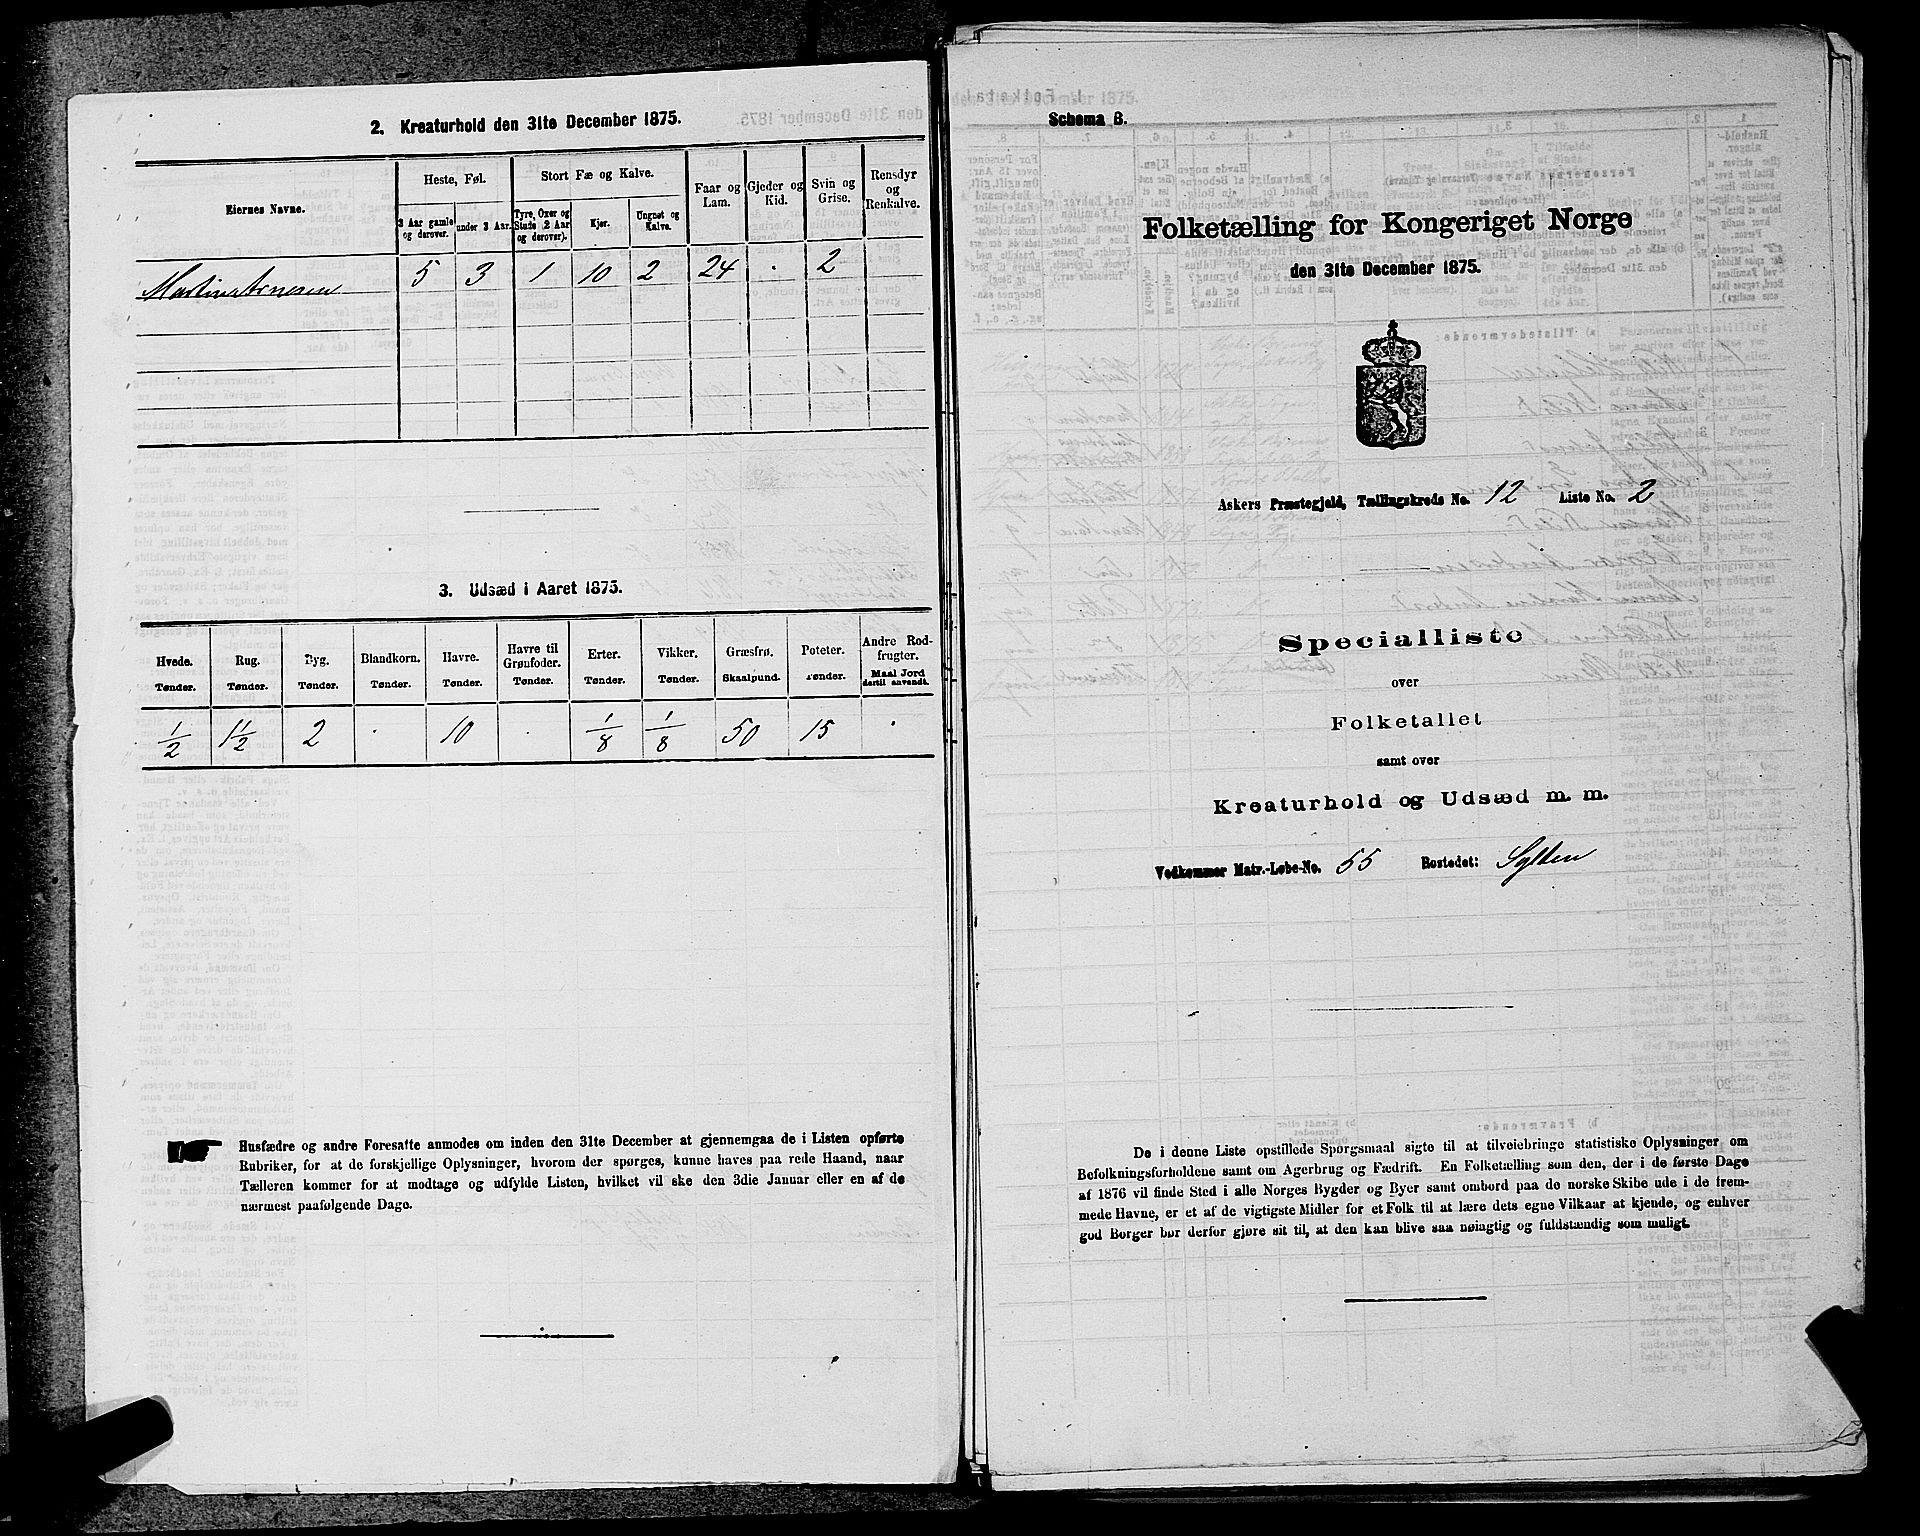 2. Kreaturhold den 31te December 1875.
Eiernes Navne.
Heste, Føl.
Stort Fæ og Kalve.
Faar og Lam.
Gjeder og Kid.
Svin og Grise.
Rensdyr og Renkalve.
3 Aar gamle og derover.
under 3 Aar.
Tyre, Oxer og Stude (2 Aar og derover).
Kjør.
Ungnøt og Kalve.
Martin Arnesen 5 3 1 10 2 24 . 2
3. Udsæd i Aaret 1875.
Hvede. Rug. Byg. Blandkorn. Havre. Havre til Grønfoder. Erter. Vikker. Græsfrø. Poteter. Andre Rodfrugter.
Tønder. Tønder. Tønder. Tønder. Tønder. Tønder. Tønder. Tønder. Skaalpund. Tønder. Maal Jord dertil anvendt.
1/2 1 1/2 2 . 10 . 1/8 1/8 50 15 .
Husfædre og andre Foresatte anmodes om inden den 31te December at gjennemgaa de i Listen opførte
Rubriker, for at de forskjellige Oplysninger, hvorom der spørges, kunne haves paa rede Haand, naar
Tælleren kommer for at modtage og udfylde Listen, hvilket vil ske den 3die Januar eller en af de
nærmest paafølgende Dage.
Schema B.
Folketælling for Kongeriget Norge
den 31te December 1875.
Askers Præstegjeld, Tællingskreds No. 12 Liste No. 2
Specialliste
over
Folketallet
samt over
Kreaturhold og Udsæd m. m.
Vedkommer Matr.-Løbe-No. 55 Bostedet: Sylden
De i denne Liste opstillede Spørgsmaal sigte til at tilveiebringe statistiske Oplysninger om
Befolkningsforholdene samt om Agerbrug og Fædrift. En Folketælling som den, der i de første Dage
af 1876 vil finde Sted i alle Norges Bygder og Byer samt ombord paa de norske Skibe ude i de frem-
mede Havne, er et af de vigtigste Midler for et Folk til at lære dets egne Vilkaar at kjende, og enhver
god Borger bør derfor gjøre sit til, at den kan blive saa nøiagtig og fuldstændig som muligt.